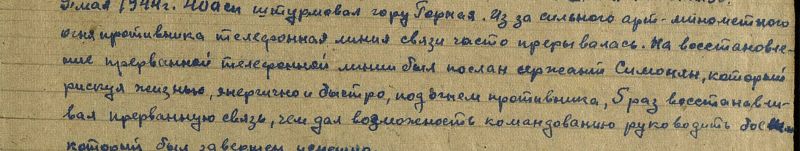 мая 1944г. 40 асп штурмовал гору Горная. Из за сильного арт-минометного
огня противника телефонная линия связи часто прерывалась. На восстановле-
ние прерванной телефонной линии был послан сержант Симонян, который
рискуя жизнью, энергично и быстро, под огнем противника, 5 раз восстанавли-
вал прерванную связь, чем дал возможность командованию руководить боем
который был завершен успешно